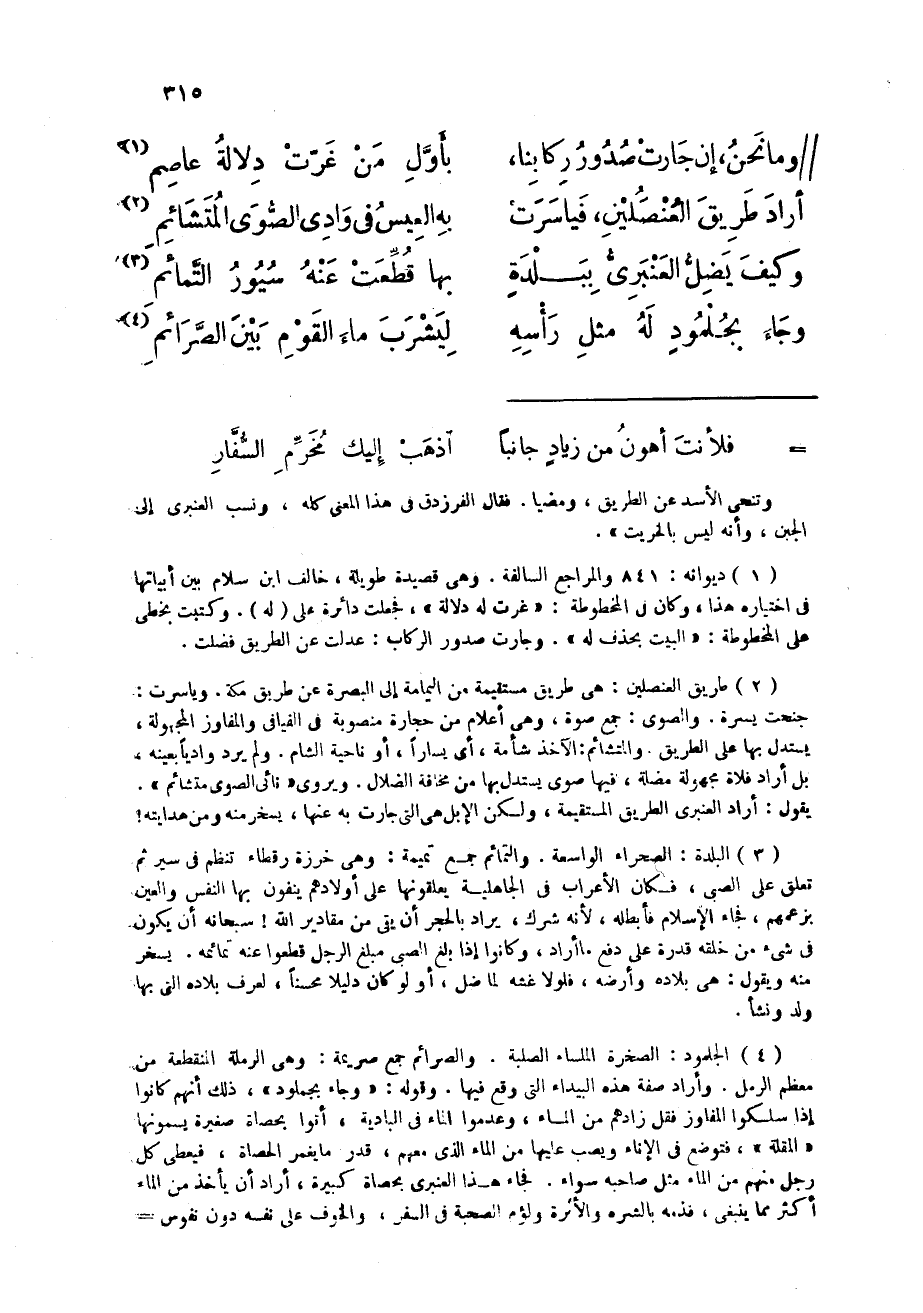 ٣١٥
// وما نَحنُ، إن جَارتْ صُدُورُ رِكابنا، بأَوَّلِ مَنْ غَرّتْ دِلالةُ عاصِمِ (١)
أرادَ طَرِيقَ العُنْصَلَيْنِ، فَياسَرَتْ بهِ العِيسُ فى وَادِى الصُّوَى المُتَشَائِمِ (٢)
وكيفَ يَضِلُّ العَنْبَرِىُّ بِبَلْدَةٍ بها قُطِّعَتْ عَنْهُ سُيُورُ التَّمائمِ (٣)
وجَاءَ بجُلْمُودٍ لَهُ مثلِ رَأْسِهِ لِيَشْرَبَ ماءَ القَوْمِ بَيْنَ الصَّرَائمِ (٤)
= فلأنتَ أهونُ من زيادٍ جانبًا آذهَبْ إليك مُخَرِّمِ السُّفَّارِ
وتنحى الأسد عن الطريق ، ومضيا . فقال الفرزدق فى هذا المعنى كله ، ونسب العنبرى إلى
الجبن ، وأنه ليس بالخريت » .
( ١ ) ديوانه : ٨٤١ والمراجع السالفة . وهى قصيدة طويلة ، خالف ابن سلام بين أبياتها
فى اختياره هذا ، وكان فى المخطوطة : « غرت له دلالة » ، فجعلت دائرة على ( له ) . وكتبت بخطى
على المخطوطة : « البيت بحذف له » . وجارت صدور الركاب : عدلت عن الطريق فضلت .
( ٢ ) طريق العنصلين : هى طريق مستقيمة من اليمامة إلى البصرة عن طريق مكة . وياسرت :
جنحت يسرة . والصوى : جمع صوة ، وهى أعلام من حجارة منصوبة فى الفيافى والمفاوز المجهولة ،
يستدل بها على الطريق . والمتشائم : الآخذ شأمة ، أى يساراً ، أو ناحية الشام . ولم يرد وادياً بعينه ،
بل أراد فلاة مجهولة مضلة ، فيها صوى يستدل بها من مخافة الضلال . ويروى « نائى الصوى متشائم » .
يقول : أراد العنبرى الطريق المستقيمة ، ولكن الإبل هى التى جارت به عنها ، يسخر منه ومن هدايته !
( ٣ ) البلدة : الصحراء الواسعة . والتمائم جمع تميمة : وهى خرزة رقطاء تنظم فى سير ثم
تعلق على الصبى ، فكان الأعراب فى الجاهلية يعلقونها على أولادهم ينفون بها النفس والعين
بزعمهم ، فجاء الإسلام فأبطله ، لأنه شرك ، يراد بالحجر أن يقى من مقادير الله ! سبحانه أن يكون
فى شىء من خلقه قدرة على دفع ما أراد ، وكانوا إذا بلغ الصبى مبلغ الرجل قطعوا عنه تمائمه . يسخر
منه ويقول : هى بلاده وأرضه ، فلولا غشه لما ضل ، أو لو كان دليلا محسناً ، لعرف بلاده التى بها
ولد ونشأ .
( ٤ ) الجلمود : الصخرة الملساء الصلبة . والصرائم جمع صريمة : وهى الرملة المنقطعة من
معظم الرمل . وأراد صفة هذه البيداء التى وقع فيها . وقوله : « وجاء بجملود » ، ذلك أنهم كانوا
إذا سلكوا المفاوز فقل زادهم من الماء ، وعدموا الماء فى البادية ، أتوا بحصاة صغيرة يسمونها
« المقلة » ، فتوضع فى الإناء ويصب عليها من الماء الذى معهم ، قدر ما يغمر الحصاة ، فيعطى كل
رجل منهم من الماء مثل صاحبه سواء . فجاء هذا العنبرى بحصاة كبيرة ، أراد أن يأخذ من الماء
أكثر مما ينبغى ، فذمه بالشره والأثرة ولؤم الصحبة فى السفر ، والخوف على نفسه دون نفوس =